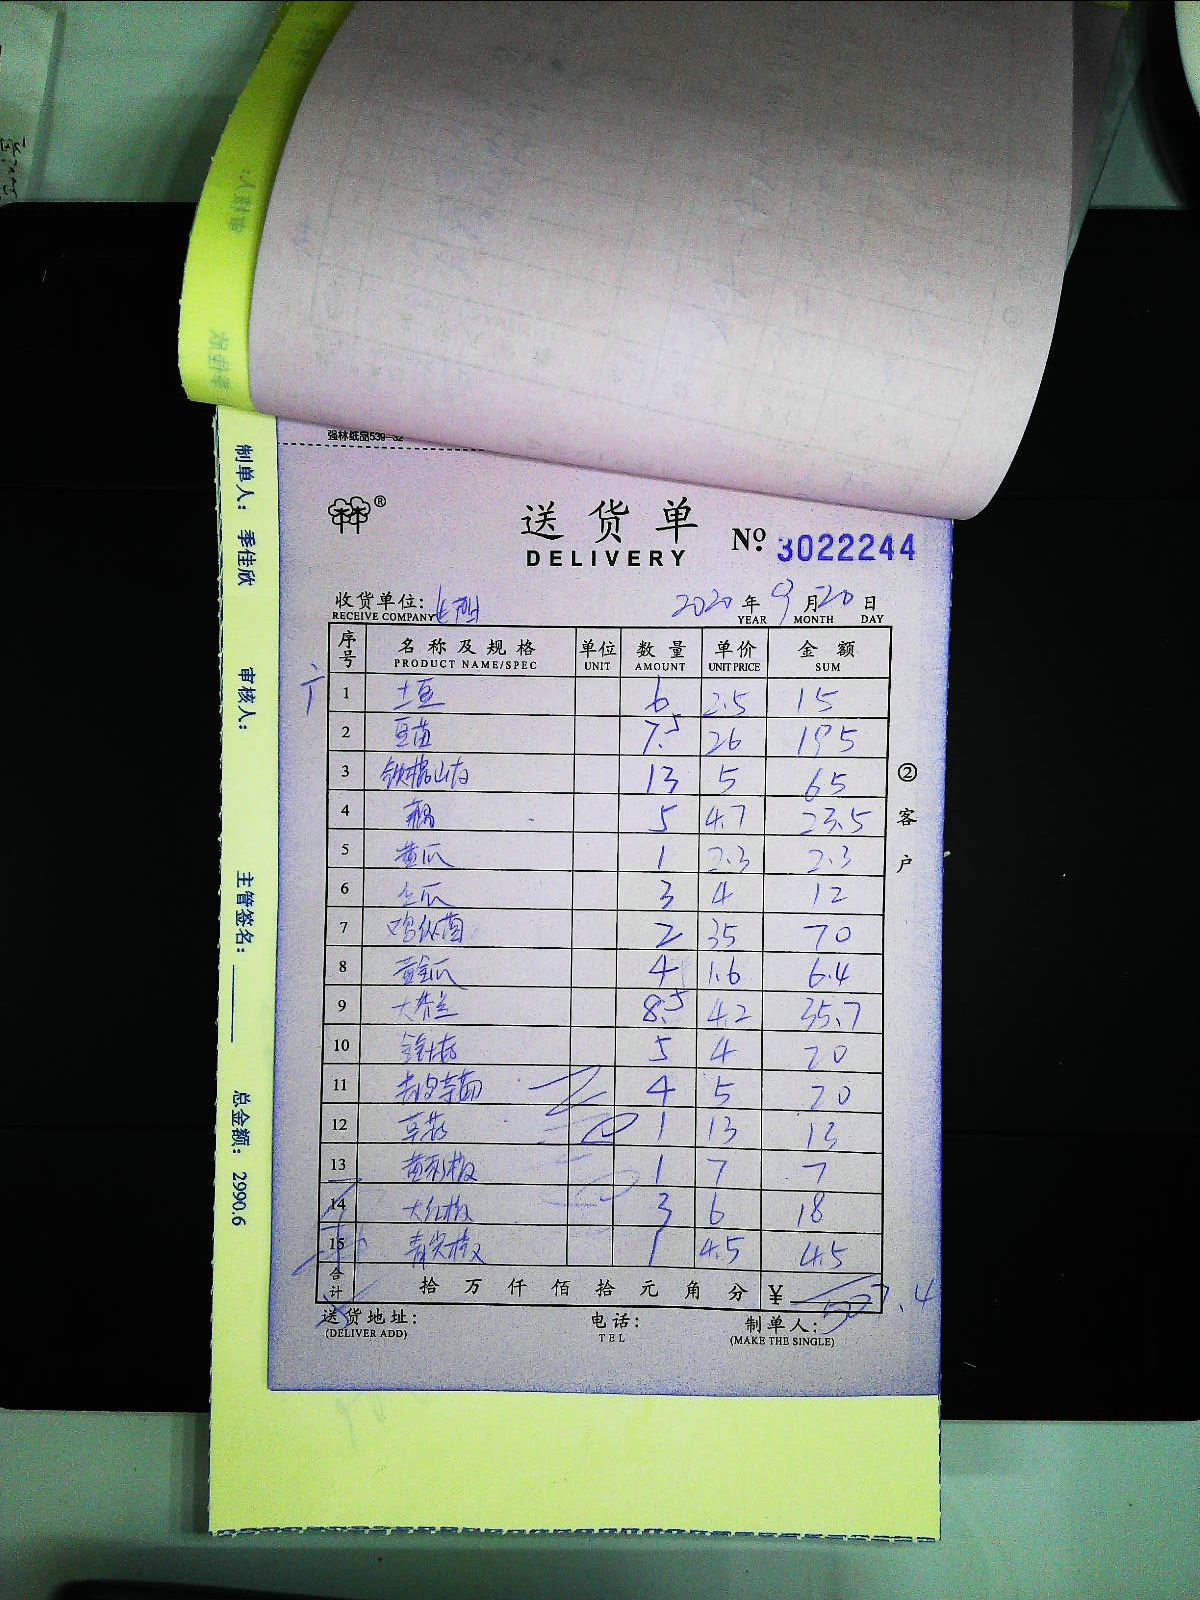 强林纸品539-32
送货单
DELIVERY
№ 3022244
收货单位:
RECEIVE COMPANY
2020 年 9 月 20 日
YEAR MONTH DAY
序号 名称及规格 单位 数量 单价 金额
PRODUCT NAME/SPEC UNIT AMOUNT UNIT PRICE SUM
1 土豆 6 2.5 15
2 豆苗 7.5 26 195
3 铁棍山药 13 5 65
4 藕 5 4.7 23.5
5 黄瓜 1 2.3 2.3
6 冬瓜 3 4 12
7 鸡枞菌 2 35 70
8 黄金瓜 4 1.6 6.4
9 8.5 4.2 35.7
10 金针菇 5 4 20
11 4 5 20
12 草菇 1 13 13
13 黄彩椒 1 7 7
14 大红椒 3 6 18
15 青尖椒 1 4.5 4.5
合计 拾 万 仟 佰 拾 元 角 分 ¥ 507.4
送货地址: 电话: 制单人:
(DELIVER ADD) TEL (MAKE THE SINGLE)
② 客户
制单人: 季佳欣 审核人: 主管签名: 总金额: 2990.6